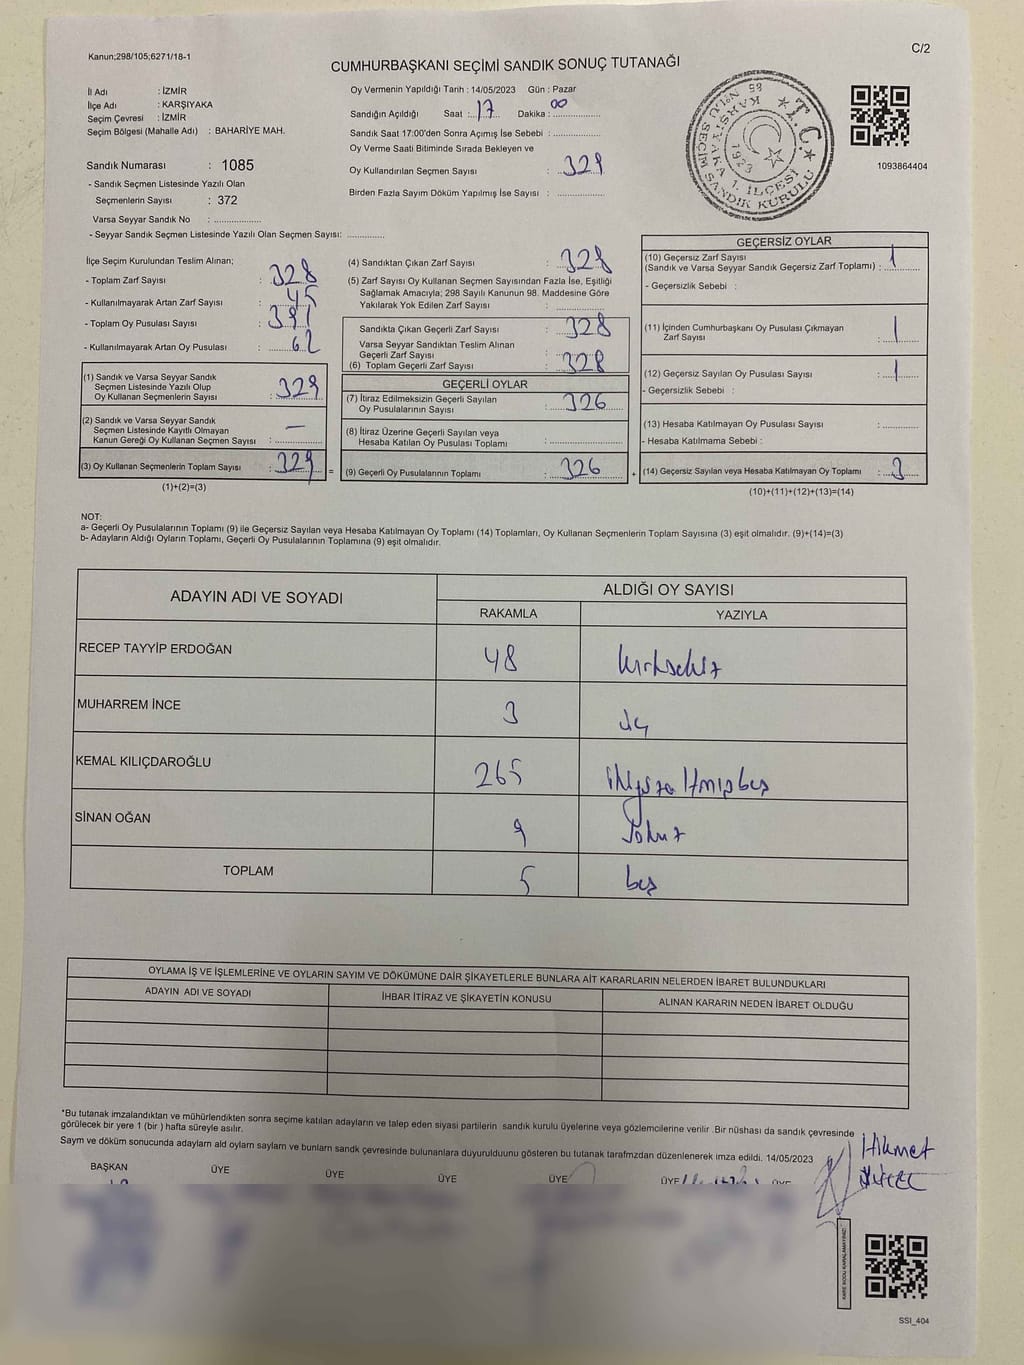 Kanun;298/105;6271/18-1
C/2
CUMHURBAŞKANI SEÇİMİ SANDIK SONUÇ TUTANAĞI
İl Adı : İZMİR
İlçe Adı : KARŞIYAKA
Seçim Çevresi : İZMİR
Seçim Bölgesi (Mahalle Adı) : BAHARİYE MAH.
Sandık Numarası : 1085
- Sandık Seçmen Listesinde Yazılı Olan
Seçmenlerin Sayısı : 372
Varsa Seyyar Sandık No : ..................
- Seyyar Sandık Seçmen Listesinde Yazılı Olan Seçmen Sayısı: ..............
Oy Vermenin Yapıldığı Tarih : 14/05/2023 Gün : Pazar
Sandığın Açıldığı Saat : 17 Dakika : 00
Sandık Saat 17:00'den Sonra Açımış İse Sebebi : ..................
Oy Verme Saati Bitiminde Sırada Bekleyen ve
Oy Kullandırılan Seçmen Sayısı : 329
Birden Fazla Sayım Döküm Yapılmış İse Sayısı : ..................
T.C.
KARŞIYAKA 1. İLÇESİ
SEÇİM SANDIK KURULU
1923
1093864404
İlçe Seçim Kurulundan Teslim Alınan;
- Toplam Zarf Sayısı : 328
- Kullanılmayarak Artan Zarf Sayısı : 45
- Toplam Oy Pusulası Sayısı : 391
- Kullanılmayarak Artan Oy Pusulası : 62
(1) Sandık ve Varsa Seyyar Sandık
Seçmen Listesinde Yazılı Olup
Oy Kullanan Seçmenlerin Sayısı : 329
(2) Sandık ve Varsa Seyyar Sandık
Seçmen Listesinde Kayıtlı Olmayan
Kanun Gereği Oy Kullanan Seçmen Sayısı : —
(3) Oy Kullanan Seçmenlerin Toplam Sayısı : 329
(1)+(2)=(3)
(4) Sandıktan Çıkan Zarf Sayısı : 328
(5) Zarf Sayısı Oy Kullanan Seçmen Sayısından Fazla İse, Eşitliği
Sağlamak Amacıyla; 298 Sayılı Kanunun 98. Maddesine Göre
Yakılarak Yok Edilen Zarf Sayısı : ..................
Sandıkta Çıkan Geçerli Zarf Sayısı : 328
Varsa Seyyar Sandıktan Teslim Alınan
Geçerli Zarf Sayısı :
(6) Toplam Geçerli Zarf Sayısı : 328
GEÇERLİ OYLAR
(7) İtiraz Edilmeksizin Geçerli Sayılan
Oy Pusulalarının Sayısı : 326
(8) İtiraz Üzerine Geçerli Sayılan veya
Hesaba Katılan Oy Pusulası Toplamı : ..................
= (9) Geçerli Oy Pusulalarının Toplamı : 326
GEÇERSİZ OYLAR
(10) Geçersiz Zarf Sayısı
(Sandık ve Varsa Seyyar Sandık Geçersiz Zarf Toplamı) : 1
- Geçersizlik Sebebi :
(11) İçinden Cumhurbaşkanı Oy Pusulası Çıkmayan
Zarf Sayısı : 1
(12) Geçersiz Sayılan Oy Pusulası Sayısı : 1
- Geçersizlik Sebebi :
(13) Hesaba Katılmayan Oy Pusulası Sayısı : ..............
- Hesaba Katılmama Sebebi :
+ (14) Geçersiz Sayılan veya Hesaba Katılmayan Oy Toplamı : 3
(10)+(11)+(12)+(13)=(14)
NOT:
a- Geçerli Oy Pusulalarının Toplamı (9) ile Geçersiz Sayılan veya Hesaba Katılmayan Oy Toplamı (14) Toplamları, Oy Kullanan Seçmenlerin Toplam Sayısına (3) eşit olmalıdır. (9)+(14)=(3)
b- Adayların Aldığı Oyların Toplamı, Geçerli Oy Pusulalarının Toplamına (9) eşit olmalıdır.
ADAYIN ADI VE SOYADI
ALDIĞI OY SAYISI
RAKAMLA YAZIYLA
RECEP TAYYİP ERDOĞAN 48 kırksekiz
MUHARREM İNCE 3 üç
KEMAL KILIÇDAROĞLU 265 ikiyüzaltmışbeş
SİNAN OĞAN 9 dokuz
TOPLAM 5 beş
OYLAMA İŞ VE İŞLEMLERİNE VE OYLARIN SAYIM VE DÖKÜMÜNE DAİR ŞİKAYETLERLE BUNLARA AİT KARARLARIN NELERDEN İBARET BULUNDUKLARI
ADAYIN ADI VE SOYADI İHBAR İTİRAZ VE ŞİKAYETİN KONUSU ALINAN KARARIN NEDEN İBARET OLDUĞU
*Bu tutanak imzalandıktan ve mühürlendikten sonra seçime katılan adayların ve talep eden siyasi partilerin sandık kurulu üyelerine veya gözlemcilerine verilir .Bir nüshası da sandık çevresinde
görülecek bir yere 1 (bir ) hafta süreyle asılır.
Saym ve döküm sonucunda adaylarn ald oylarn saylam ve bunlarn sandk çevresinde bulunanlara duyurulduunu gösteren bu tutanak tarafmzdan düzenlenerek imza edildi. 14/05/2023
BAŞKAN ÜYE ÜYE ÜYE ÜYE ÜYE ÜYE
Hikmet
KARE KODU KARALAMAYINIZ!
SSI_404